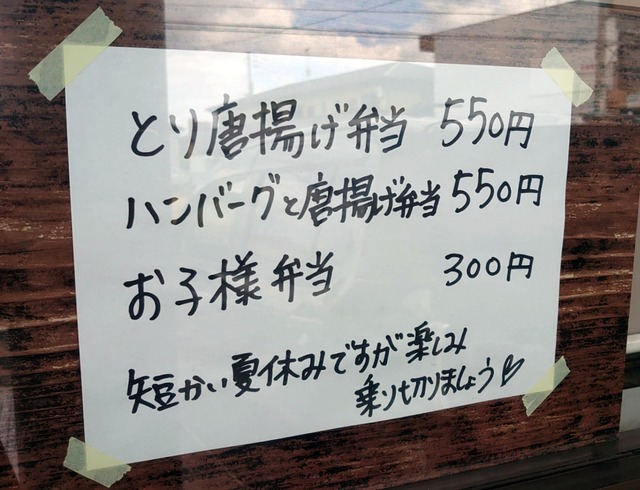 とり唐揚げ弁当 550円
ハンバーグと唐揚げ弁当 550円
お子様弁当 300円
短かい夏休みですが楽しみ
乗り切りましょう♡